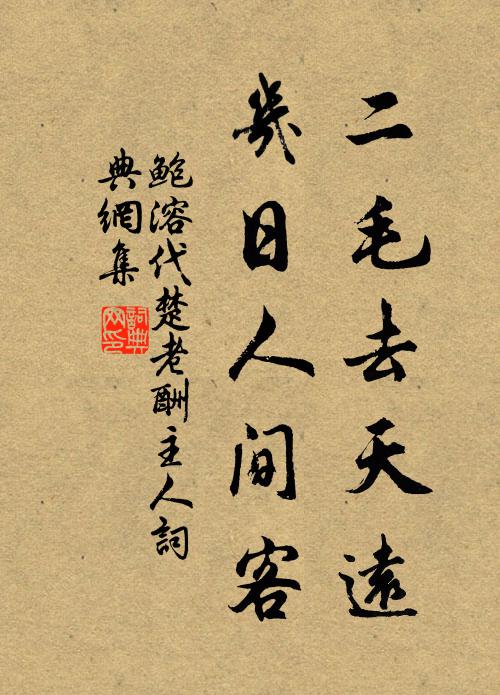 二毛去天遠
幾日人間客
鮑溶代楚老酬主人詞
典網集
詞典网印